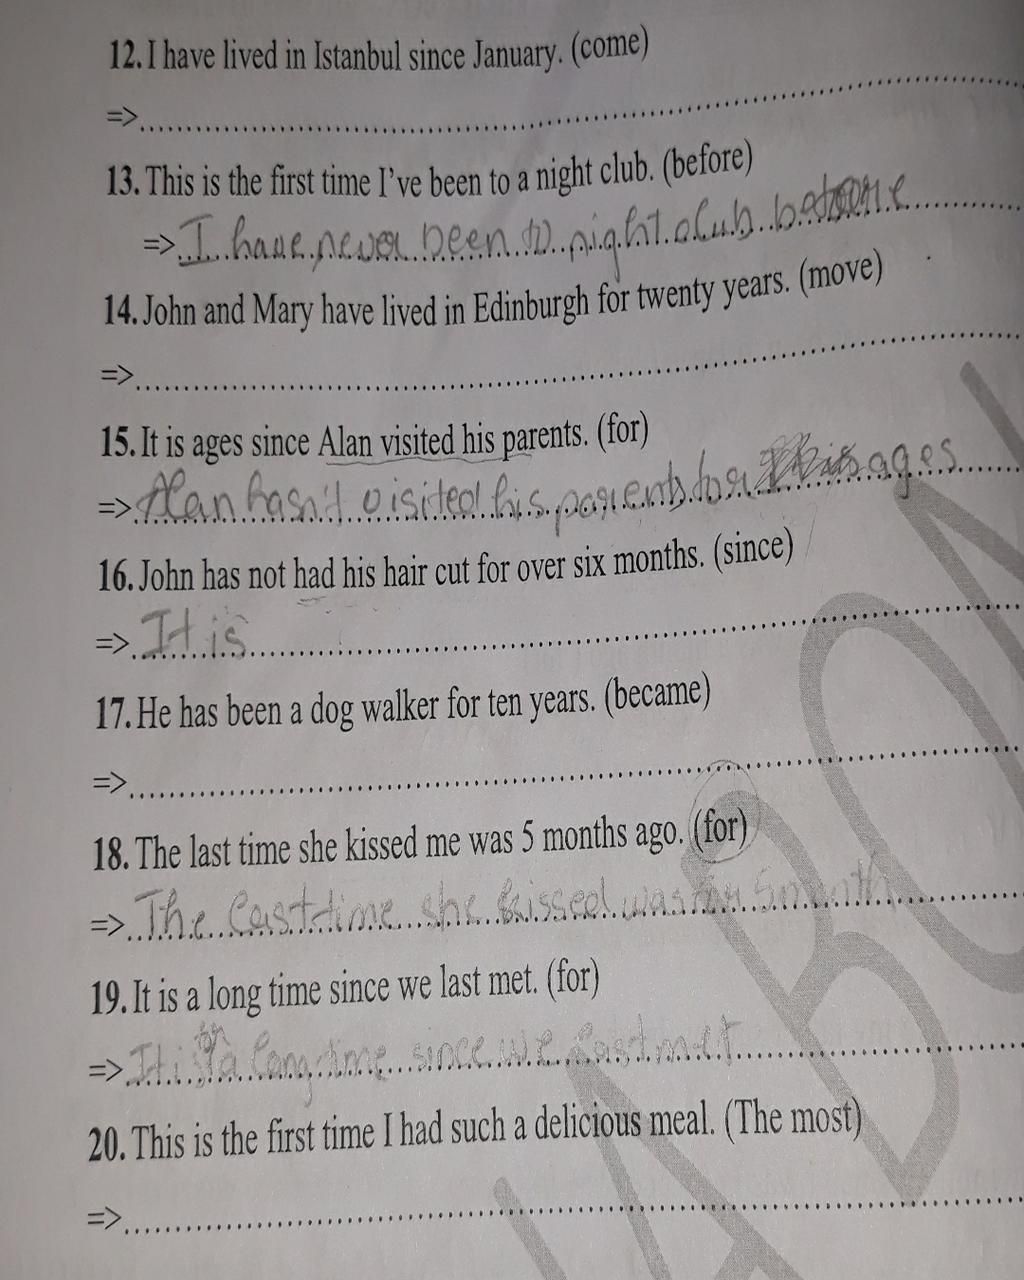 12. I have lived in Istanbul since January. (come)
=>
13. This is the first time I've been to a night club. (before)
=> I have never been to night club before
14. John and Mary have lived in Edinburgh for twenty years. (move)
=>
15. It is ages since Alan visited his parents. (for)
=> Alan hasn't visited his parents for ages
16. John has not had his hair cut for over six months. (since)
=> It is
17. He has been a dog walker for ten years. (became)
=>
18. The last time she kissed me was 5 months ago. (for)
=> The last time she kissed was for 5 month
19. It is a long time since we last met. (for)
=> It is a long time since we last met
20. This is the first time I had such a delicious meal. (The most)
=>